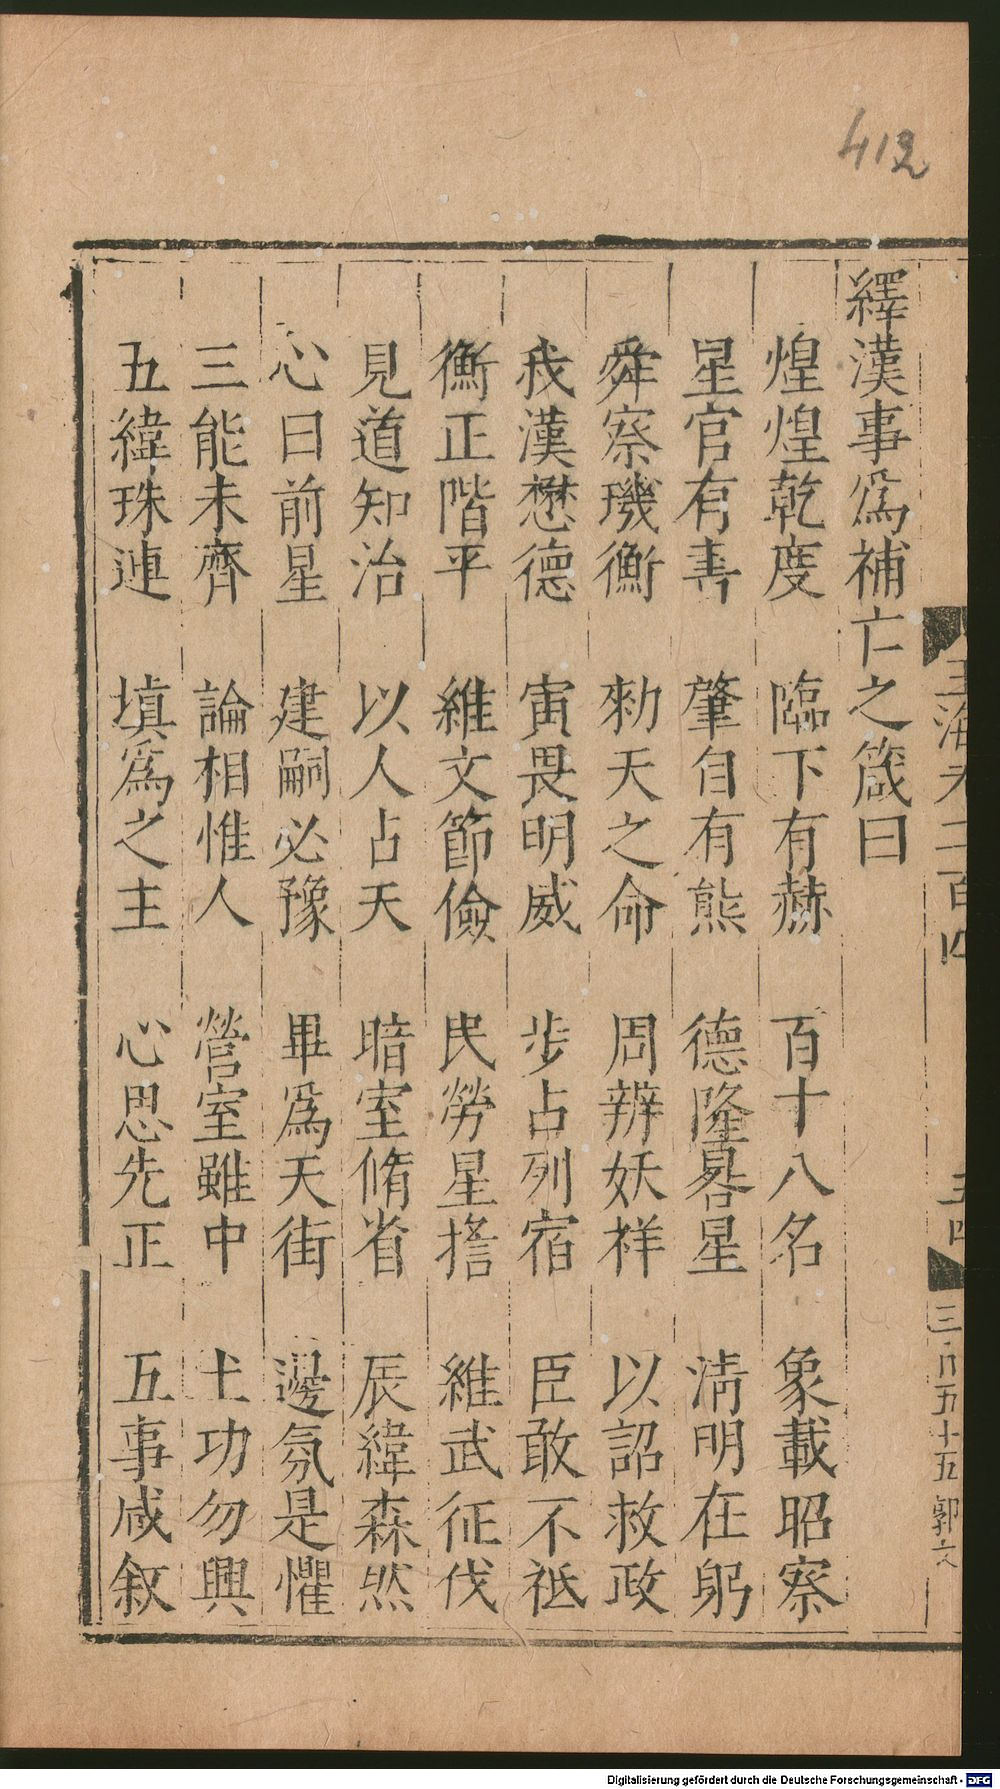 412
繹漢事爲補亡之箴曰
煌煌乾度 臨下有赫 百十八名 象載昭察
星官有書 肇自有熊 德隆晷星 淸明在躬
舜察璣衡 勑天之命 周辨妖祥 以詔救政
我漢懋德 寅畏明威 步占列宿 臣敢不祗
衡正階平 維文節儉 民勞星擔 維武征伐
見道知治 以人占天 暗室脩省 辰緯森然
心曰前星 建嗣必豫 畢爲天街 邊氛是懼
三能未齊 論相惟人 營室雖中 土功勿興
五緯珠連 塡爲之主 心思先正 五事咸敘
玉海卷二百四
三百五十五 郭文
Digitalisierung gefördert durch die Deutsche Forschungsgemeinschaft - DFG